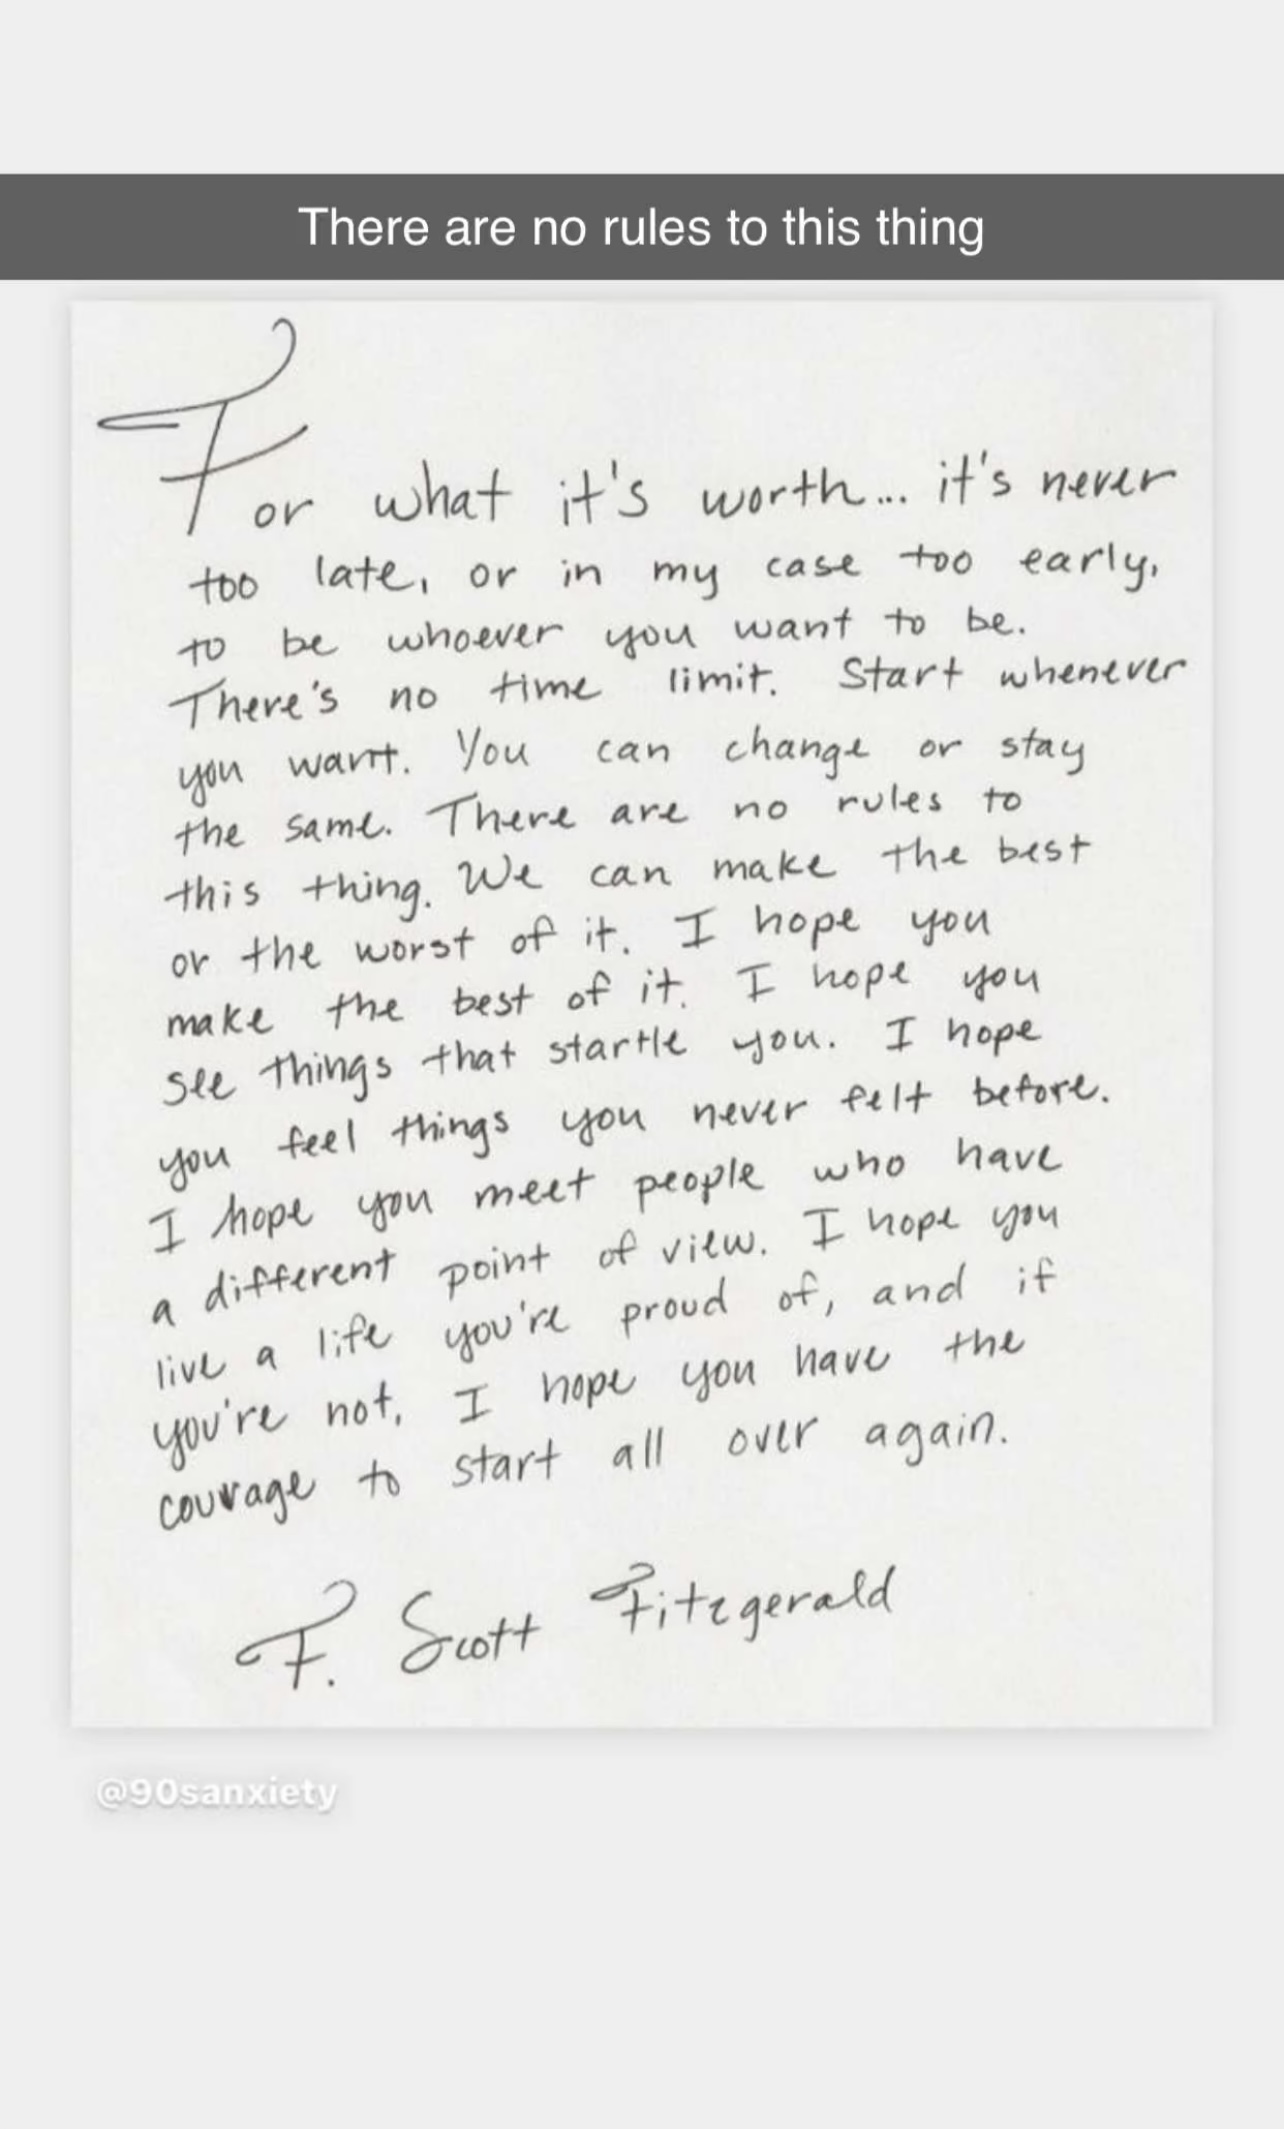 There are no rules to this thing
For what it's worth... it's never
too late, or in my case too early,
to be whoever you want to be.
There's no time limit. Start whenever
you want. You can change or stay
the same. There are no rules to
this thing. We can make the best
or the worst of it. I hope you
make the best of it. I hope you
see things that startle you. I hope
you feel things you never felt before.
I hope you meet people who have
a different point of view. I hope you
live a life you're proud of, and if
you're not, I hope you have the
courage to start all over again.
F. Scott Fitzgerald
@90sanxiety